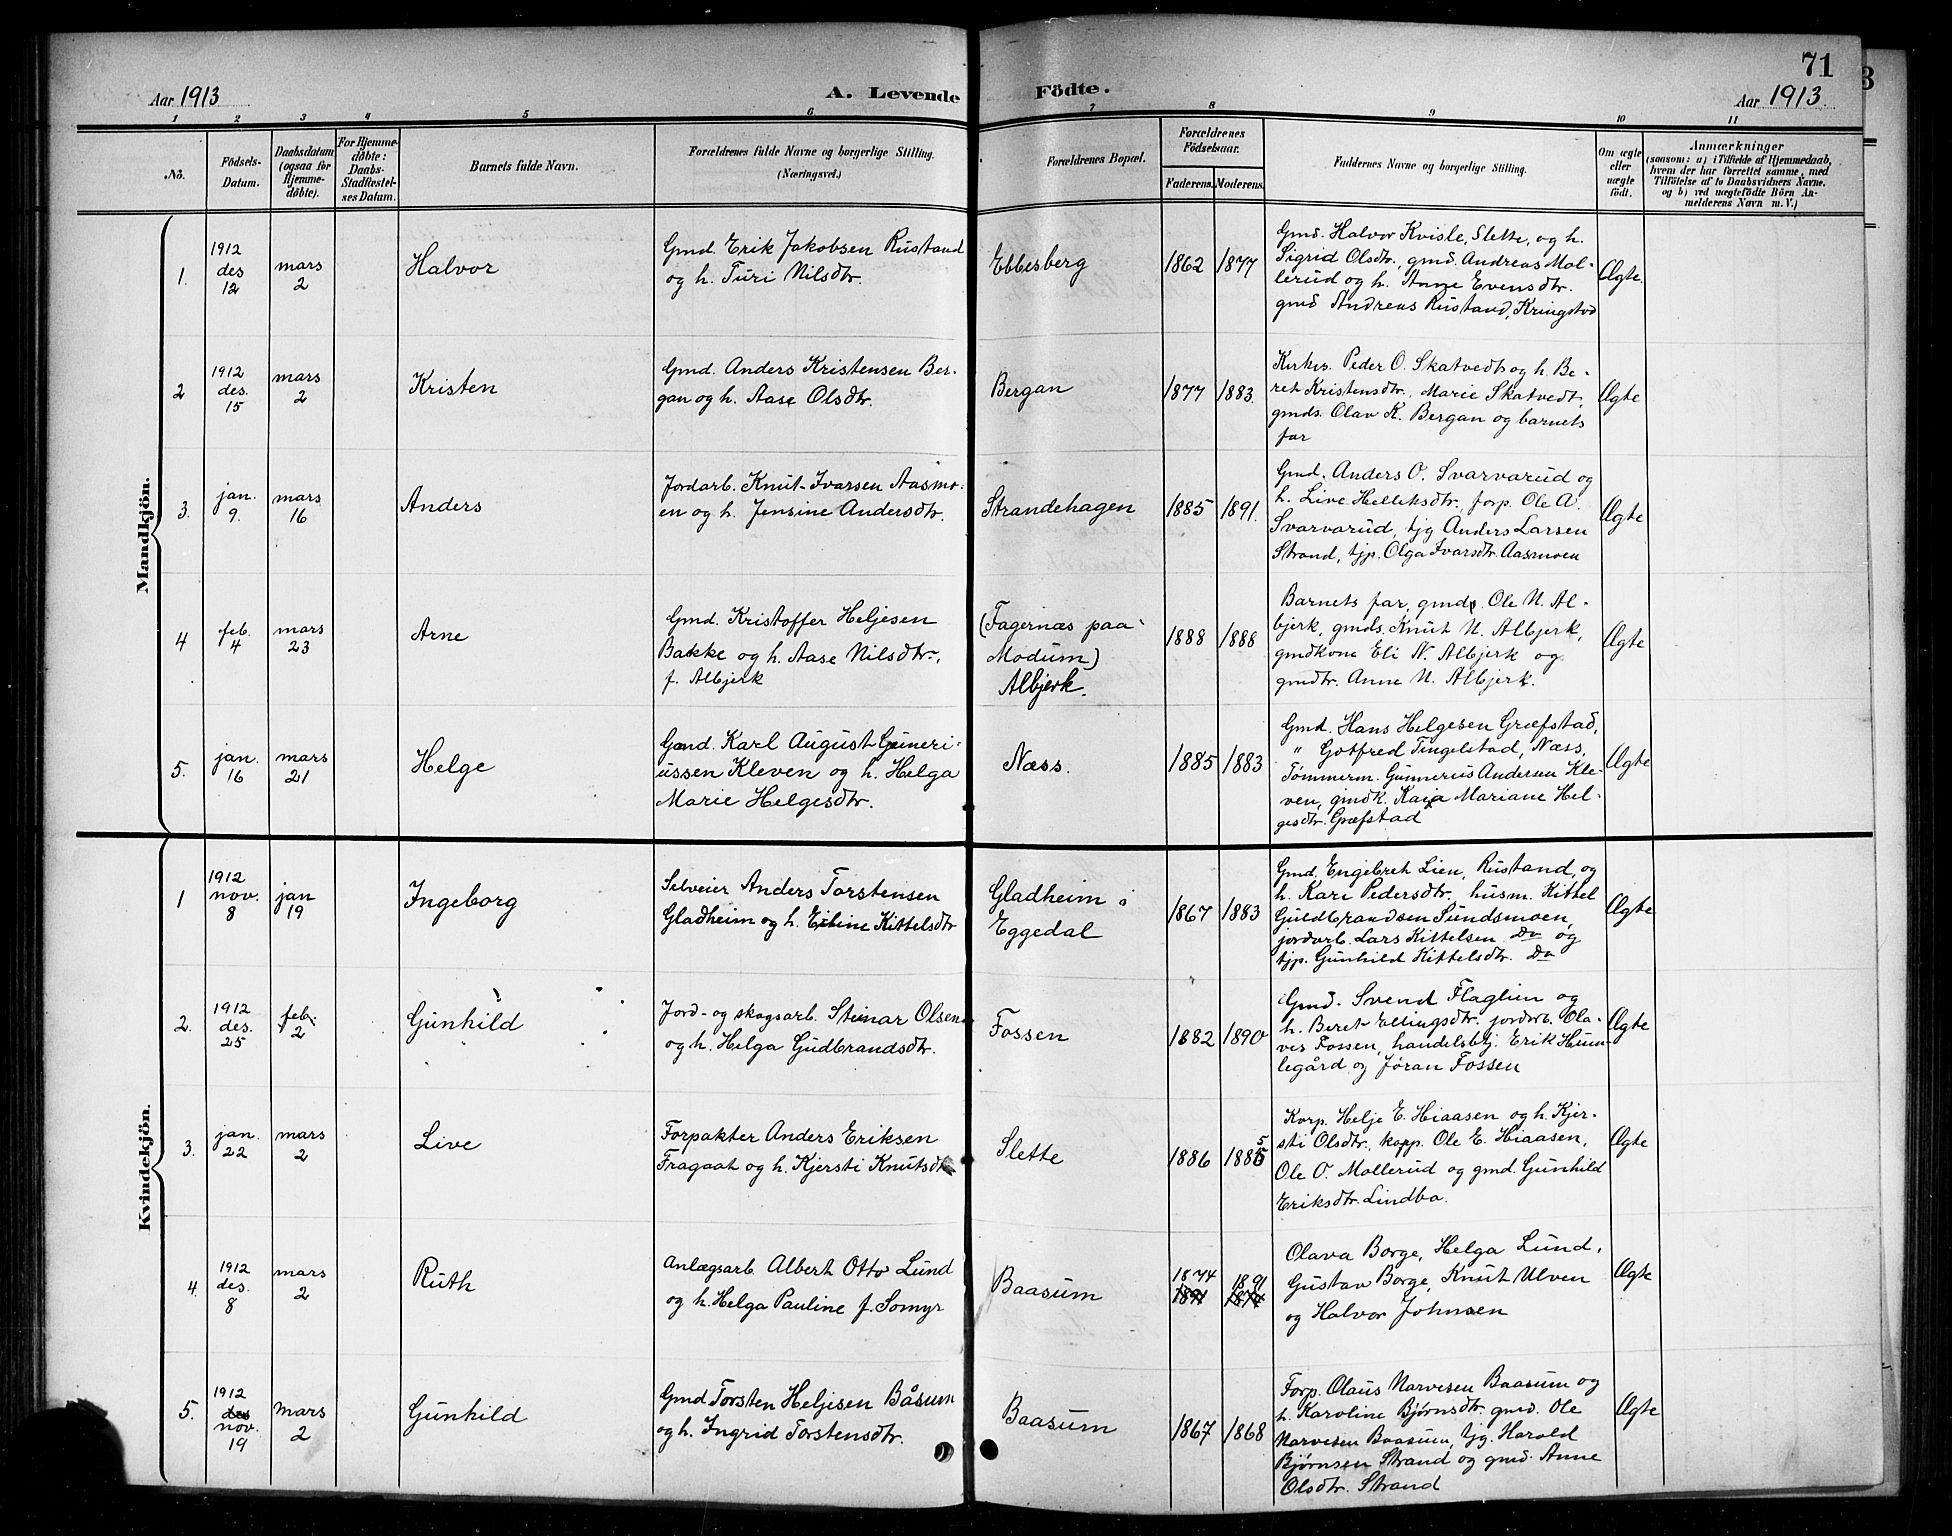 71
Aar 1913
A. Levende Födte.
Aar 1913
1 2 3 4 5 6 7 8 9 10 11
No.
Födsels-
Datum.
Daabsdatum
(ogsaa for
Hjemme-
döbte).
For Hjemme-
döbte:
Daabs-
Stadfæstel-
ses Datum.
Barnets fulde Navn.
Forældrenes fulde Navne og borgerlige Stilling.
(Næringsvei.)
Forældrenes Bopæl.
Forældrenes
Födselsaar.
Faderens.
Moderens.
Faddernes Navne og borgerlige Stilling.
Om ægte
eller
uægte
födt.
Anmærkninger
(saasom: a) i Tilfælde af Hjemmedaab,
hvem der har forrettet samme, med
Tilföielse af to Daabsvidners Navne,
og b) ved uægtefödte Börn An-
melderens Navn m. V.)
Mandkjön.
1.
1912
des
12
mars
2
Halvor
Gmd. Erik Jakobsen Rustand
og h. Turi Nilsdtr.
Ebbesberg
1862
1877
Gmd. Halvor Kvisle, Slette, og h.
Sigrid Olsdtr., gmd. Andreas Mol-
lerud og h. Anne Evensdtr.
gmd Andreas Rustand, Kringstad
Ægte.
2
1912
des.
15
mars
2
Kristen
Gmd. Anders Kristensen Ber-
gan og h. Aase Olsdtr.
Bergan
1877
1883.
Kirkes. Peder O. Skatvedt og h. Be-
ret Kristensdtr., Marie Skatvedt,
gmds. Olav K. Bergan og barnets
far
Ægte
3.
jan.
9.
mars
16
Anders
Jordarb. Knut Ivarsen Aasmo-
en og h. Jensine Andersdtr.
Strandehagen
1885
1891.
Gmd. Anders O. Svarvarud og
h. Live Helleksdtr., forp. Ole A.
Svarvarud, tjg Anders Larsen
Strand, tjp. Olga Ivarsdtr. Aasmoen
Ægte
4
feb.
4
mars
23
Arne
Gmd. Kristoffer Heljesen
Bakke og h. Aase Nilsdtr.,
f. Albjerk
(Fagernæs paa
Modum)
Albjerk.
1888
1888
Barnets far, gmds. Ole N. Al-
bjerk, gmds. Knut N. Albjerk,
gmdkone Eli N. Albjerk og
gmdtr. Anne N. Albjerk.
Ægte
5.
jan.
16
mars
21
Helge
Gmd. Karl August Guneri-
ussen Kleven og h. Helga
Marie Helgesdtr.
Næss.
1885
1883
Gmd. Hans Helgesen Græfstad,
" Gotfred Tingelstad, Næss,
Tømmerm. Gunnerius Andersen Kle-
ven, gmdk. Kaia Mariane Hel-
gesdtr. Græfstad
Ægte
Kvindekjön.
1
1912
nov.
8
jan
19
Ingeborg
Selveier Anders Torstensen
Gladheim og h. Eline Kittelsdtr
Gladheim i
Eggedal
1867
1883
Gmd. Engebret Lien, Rustand, og
h. Kari Pedersdtr., husm. Kittel
Guldbrandsen Sundsmoen,
jordarb. Lars Kittelsen Do og
tjp. Gunhild Kittelsdtr. Do
Ægte
2.
1912
des.
25
feb.
2
Gunhild
Jord- og skogsarb. Steinar Olsen
og h. Helga Gudbrandsdtr.
Fossen
1882
1890
Gmd. Svend Flaglien og
h. Beret Ellingsdtr. jordarb. Ola-
ves Fossen, handelsbtj. Erik Hum-
legård og Jøran Fossen
Ægte
3.
jan.
22
mars
2
Live
Forpakter Anders Eriksen
Fragaat og h. Kjersti Knutsdtr
Slette
1886
1885
Korp. Helje E. Hiaasen og h. Kjer-
sti Olsdtr., kopp. Ole E. Hiaasen,
Ole O. Mollerud og gmd. Gunhild
Eriksdtr. Lindbo.
Ægte
4.
1912
des.
8
mars
2
Ruth
Anlægsarb. Albert Otto Lund
og h. Helga Pauline f. Somyr
Baasum
1874
1891
1891
1874
Olava Borge, Helga Lund,
Gustav Borge, Knut Ulven
og Halvor Johnsen
Ægte
5.
1912
des
nov.
19
mars
2
Gunhild
Gmd Torsten Heljesen Båsum
og h. Ingrid Torstensdtr.
Baasum
1867
1868
Forp. Olaus Narvesen Baasum og
h. Karoline Bjørnsdtr. gmd. Ole
Narvesen Baasum, tjg. Harald
Bjørnsen Strand og gmd. Anne
Olsdtr. Strand
Ægte